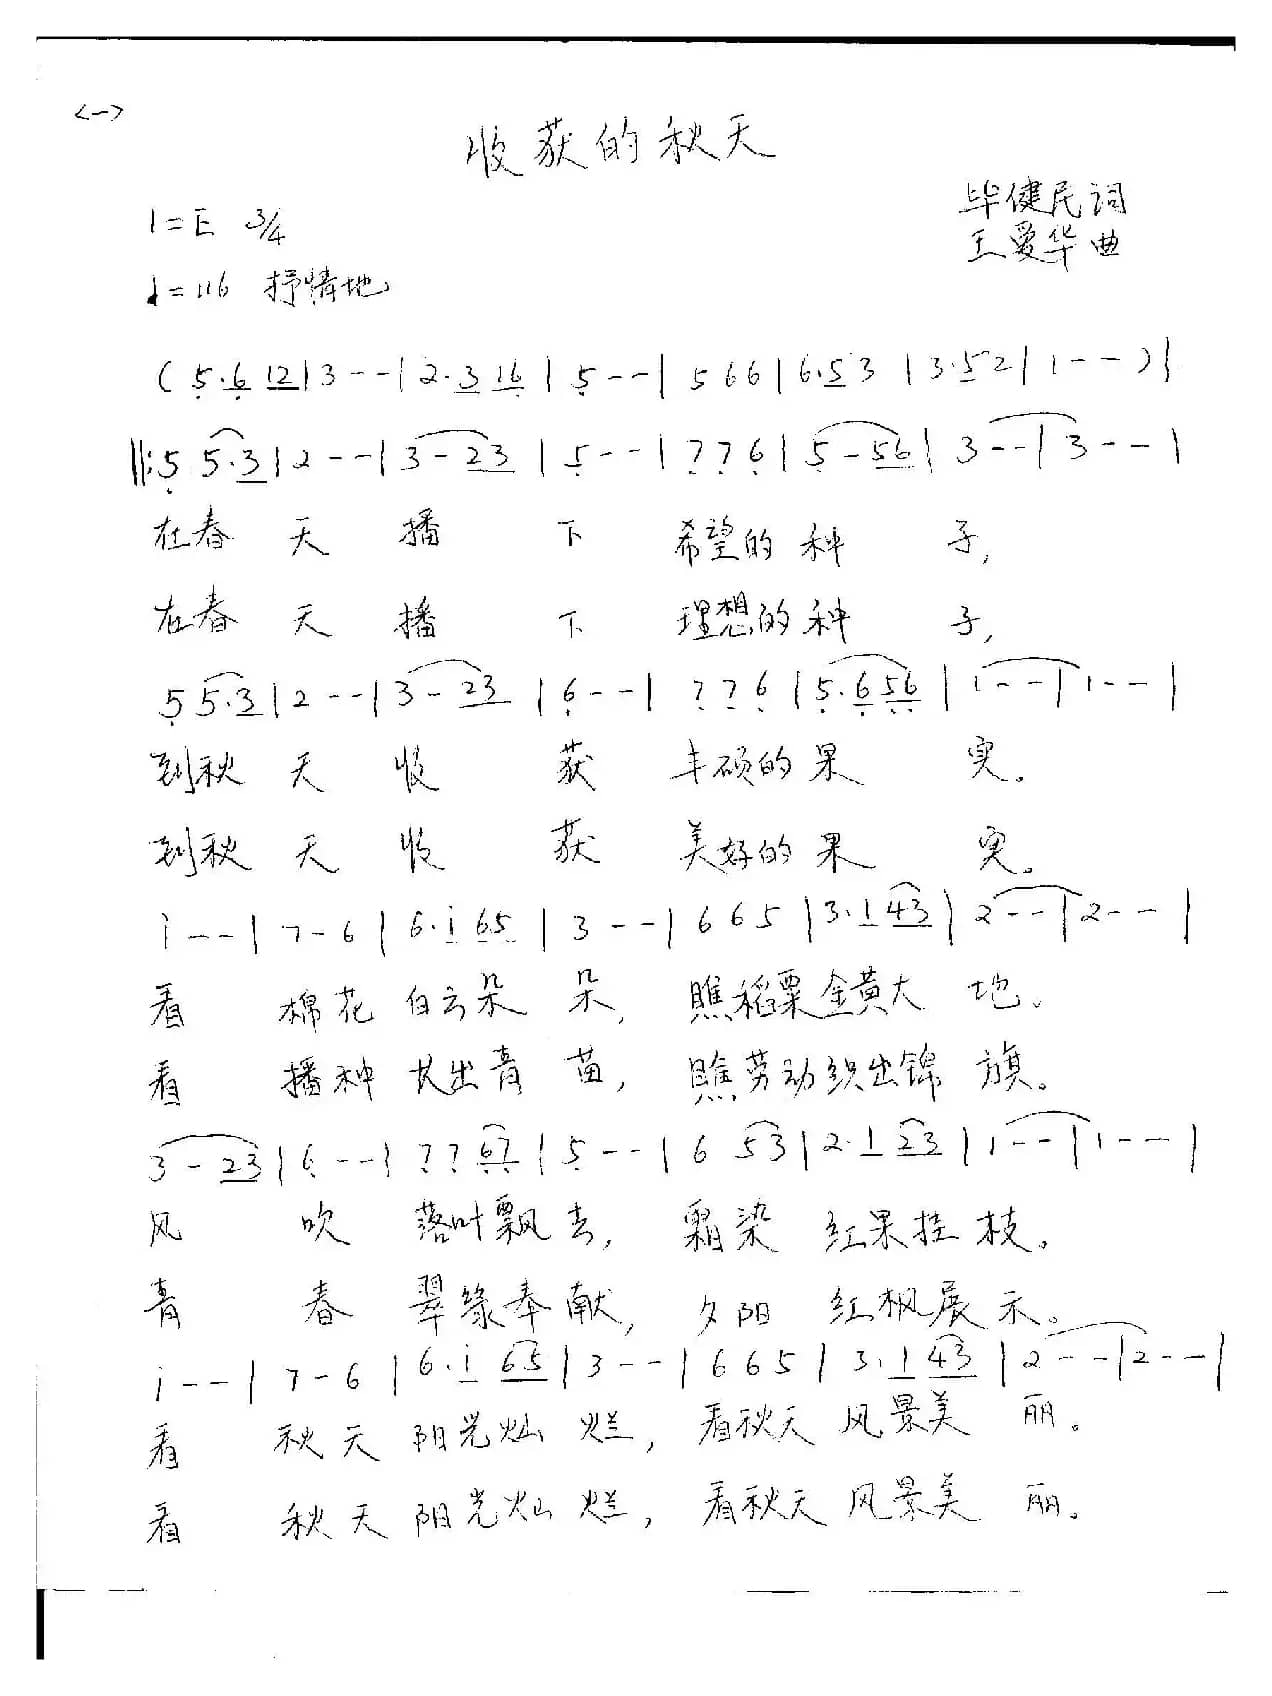 <一>
收获的秋天
毕健民词
1=E 3/4
王曼华曲
♩=116 抒情地
( 5̣·6̣ 12 | 3 - - | 2·3 16̣ | 5̣ - - | 5 6 6 | 6·5 3 | 3·5 2 | 1 - - ) |
‖: 5̣ 5·3 | 2 - - | 3 - 23 | 5̣ - - | 7̣ 7̣ 6̣ | 5̣ - 5̣6̣ | 3 - - | 3 - - |
在春 天 播 下 希望的 种 子,
在春 天 播 下 理想的 种 子,
5̣ 5·3 | 2 - - | 3 - 23 | 6̣ - - | 7̣ 7̣ 6̣ | 5̣·6̣ 5̣6̣ | 1 - - | 1 - - |
到秋 天 收 获 丰硕的 果 实。
到秋 天 收 获 美好的 果 实。
i - - | 7 - 6 | 6·i 65 | 3 - - | 6 6 5 | 3·1 43 | 2 - - | 2 - - |
看 棉花 白云朵 朵, 瞧稻粟金黄大 地。
看 播种 长出青 苗, 瞧劳动织出锦 旗。
3 - 23 | 6̣ - - | 7̣ 7̣ 6̣7̣ | 5̣ - - | 6 53 | 2·1 23 | 1 - - | 1 - - |
风 吹 落叶飘去, 霜染 红果挂 枝。
青 春 翠缘奉献, 夕阳 红枫展 示。
i - - | 7 - 6 | 6·i 65 | 3 - - | 6 6 5 | 3·1 43 | 2 - - | 2 - - |
看 秋天 阳光灿 烂, 看秋天 风景美 丽。
看 秋天 阳光灿 烂, 看秋天 风景美 丽。